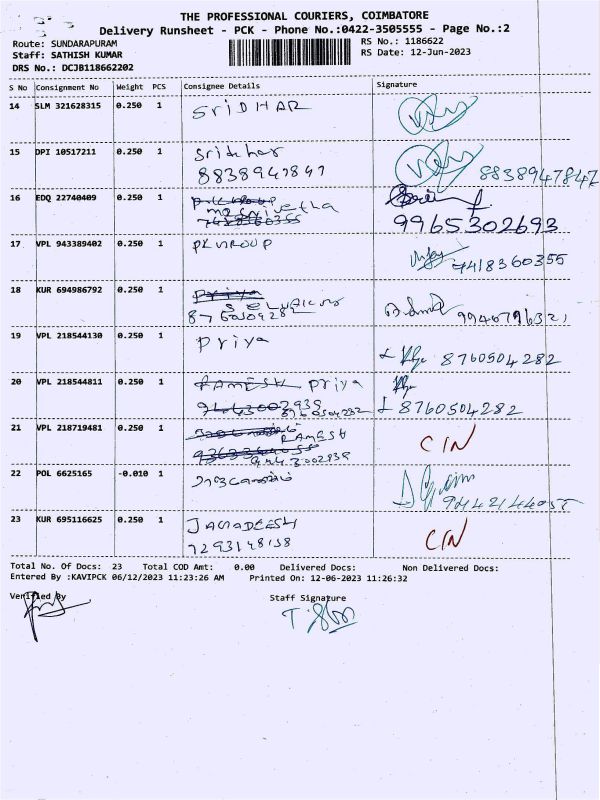 THE PROFESSIONAL COURIERS, COIMBATORE
Delivery Runsheet - PCK - Phone No.:0422-3505555 - Page No.:2
Route: SUNDARAPURAM
RS No.: 1186622
Staff: SATHISH KUMAR
RS Date: 12-Jun-2023
DRS No.: DCJB118662202
S No Consignment No Weight PCS Consignee Details Signature
14 SLM 321628315 0.250 1 SriDHAR
15 DPI 10517211 0.250 1 Sridhar
8838947847 8838947847
16 EDQ 22740409 0.250 1
9965302693
17 VPL 943389402 0.250 1 PK GROUP
7418360355
18 KUR 694986792 0.250 1
19 VPL 218544130 0.250 1 Priya
8760504282
20 VPL 218544811 0.250 1 RAMESH Priya
8760504282 8760504282
21 VPL 218719481 0.250 1 RAMESH CIN
22 POL 6625165 -0.010 1
23 KUR 695116625 0.250 1 JAGADEESH CIN
Total No. Of Docs: 23 Total COD Amt: 0.00 Delivered Docs: Non Delivered Docs:
Entered By :KAVIPCK 06/12/2023 11:23:26 AM Printed On: 12-06-2023 11:26:32
Verified By Staff Signature